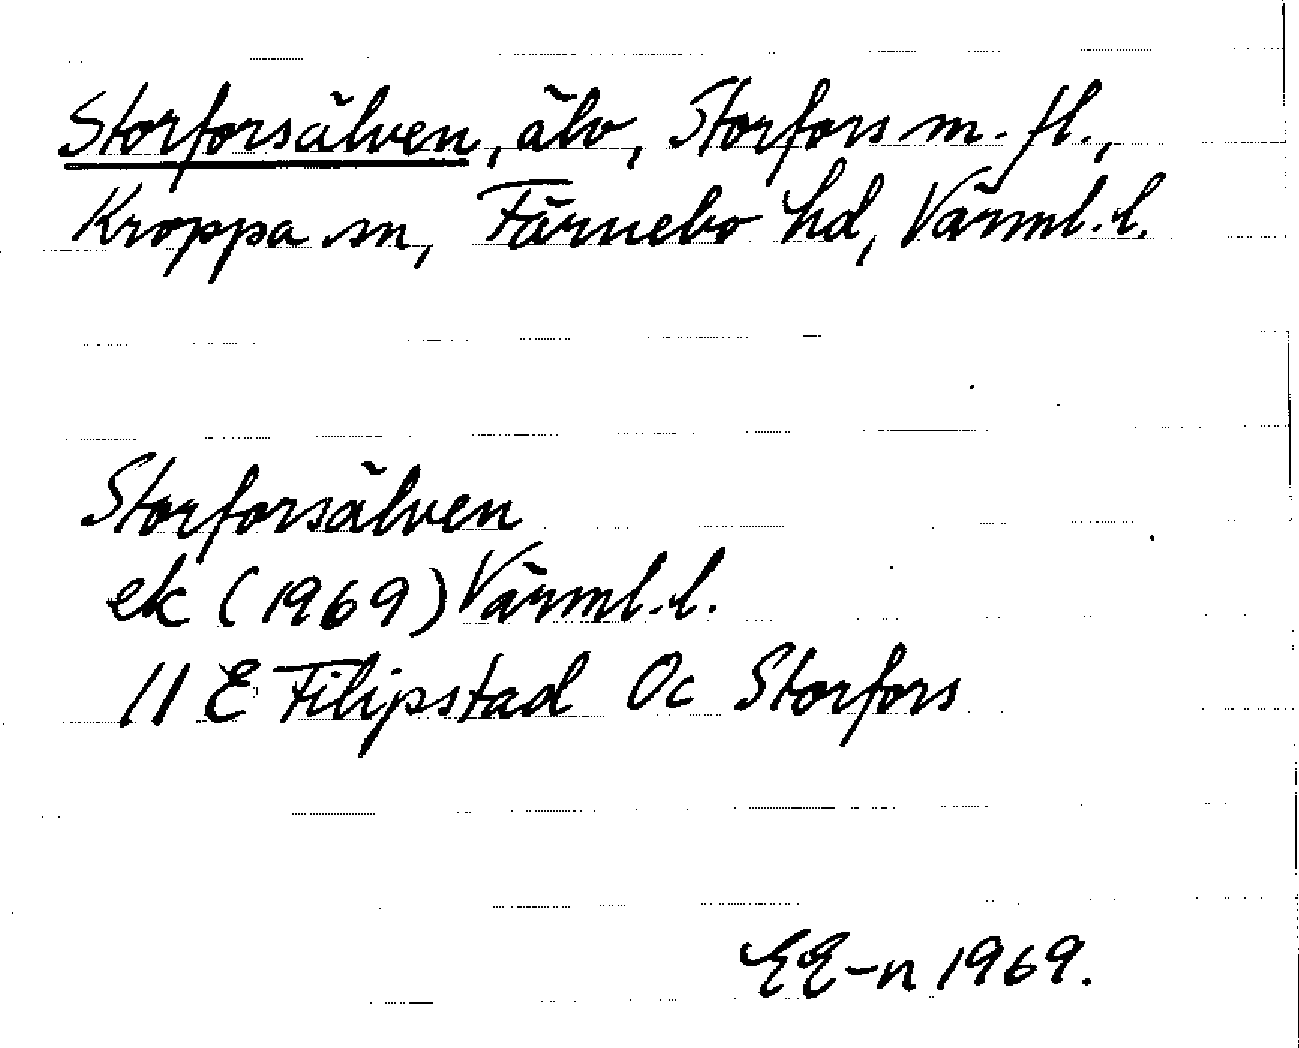 Storforsälven, älv, Storfors m. fl.,
Kroppa sn, Färnebo hd, Värml. l.
Storforsälven
ek (1969) Värml. l.
11 E Filipstad Oc Storfors
1969.